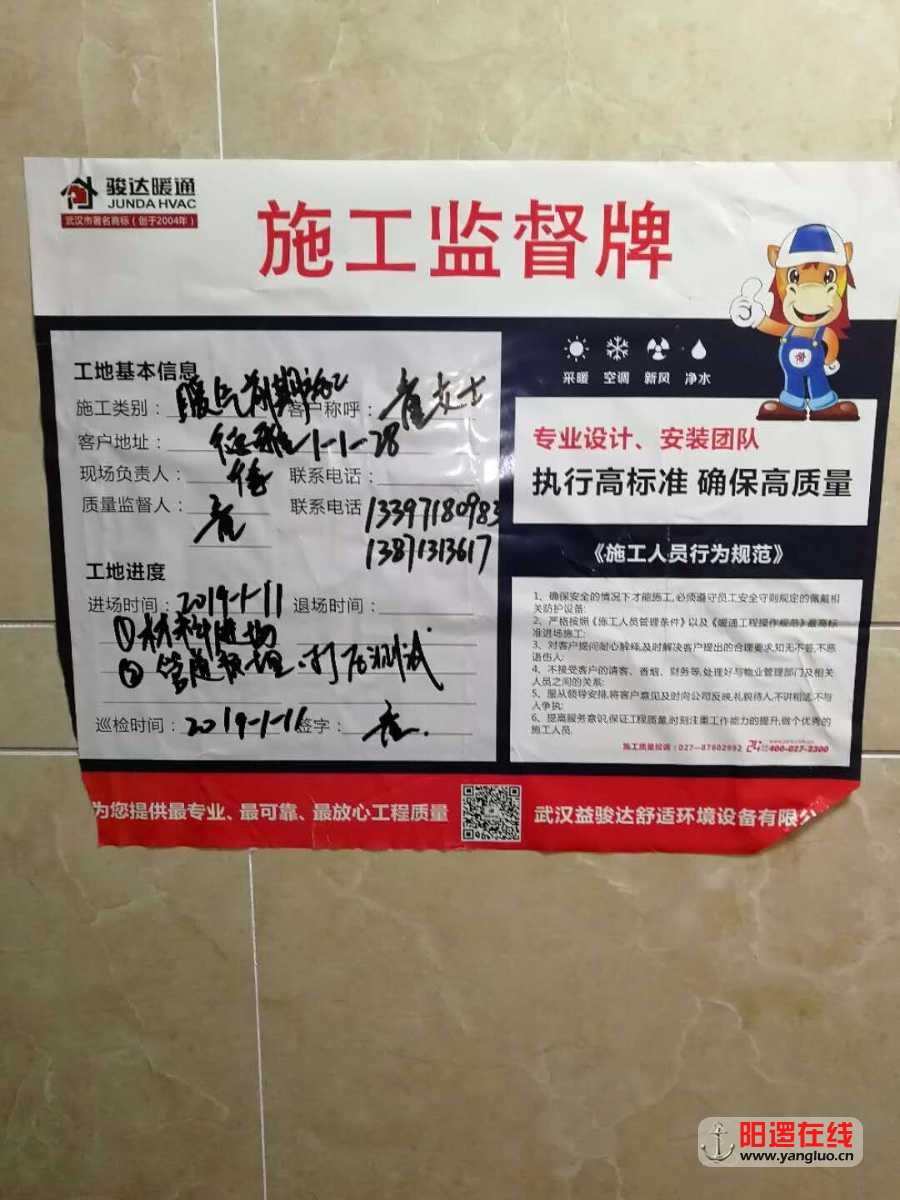 骏达暖通
JUNDA HVAC
武汉市著名商标（创于2004年）
施工监督牌
工地基本信息
施工类别： 暖气前期施工 客户称呼： 女士
客户地址： 1-1-28
现场负责人： 联系电话：
质量监督人： 联系电话 13397180983
13871313617
工地进度
进场时间： 2019-1-11 退场时间：
①材料进场
② 管道预埋.打压测试
巡检时间： 2019-1-16 签字：
采暖 空调 新风 净水
专业设计、安装团队
执行高标准 确保高质量
《施工人员行为规范》
1、确保安全的情况下才能施工,必须遵守员工安全守则规定的佩戴相关防护设备;
2、严格按照《施工人员管理条件》以及《暖通工程操作规范》最高标准进场施工;
3、对客户提问耐心解释,及时解决客户提出的合理要求,知无不答,不恶语伤人;
4、不接受客户的请客、香烟、财务等,处理好与物业管理部门及相关人员之间的关系;
5、服从领导安排,将客户意见及时向公司反映,礼貌待人,不讲粗话,不与人争执;
6、提高服务意识,保证工程质量,时刻注重工作能力的提升,做个优秀的施工人员.
施工质量投诉：027-87602992 24 400-027-2300
为您提供最专业、最可靠、最放心工程质量
武汉益骏达舒适环境设备有限公
阳逻在线
www.yangluo.cn